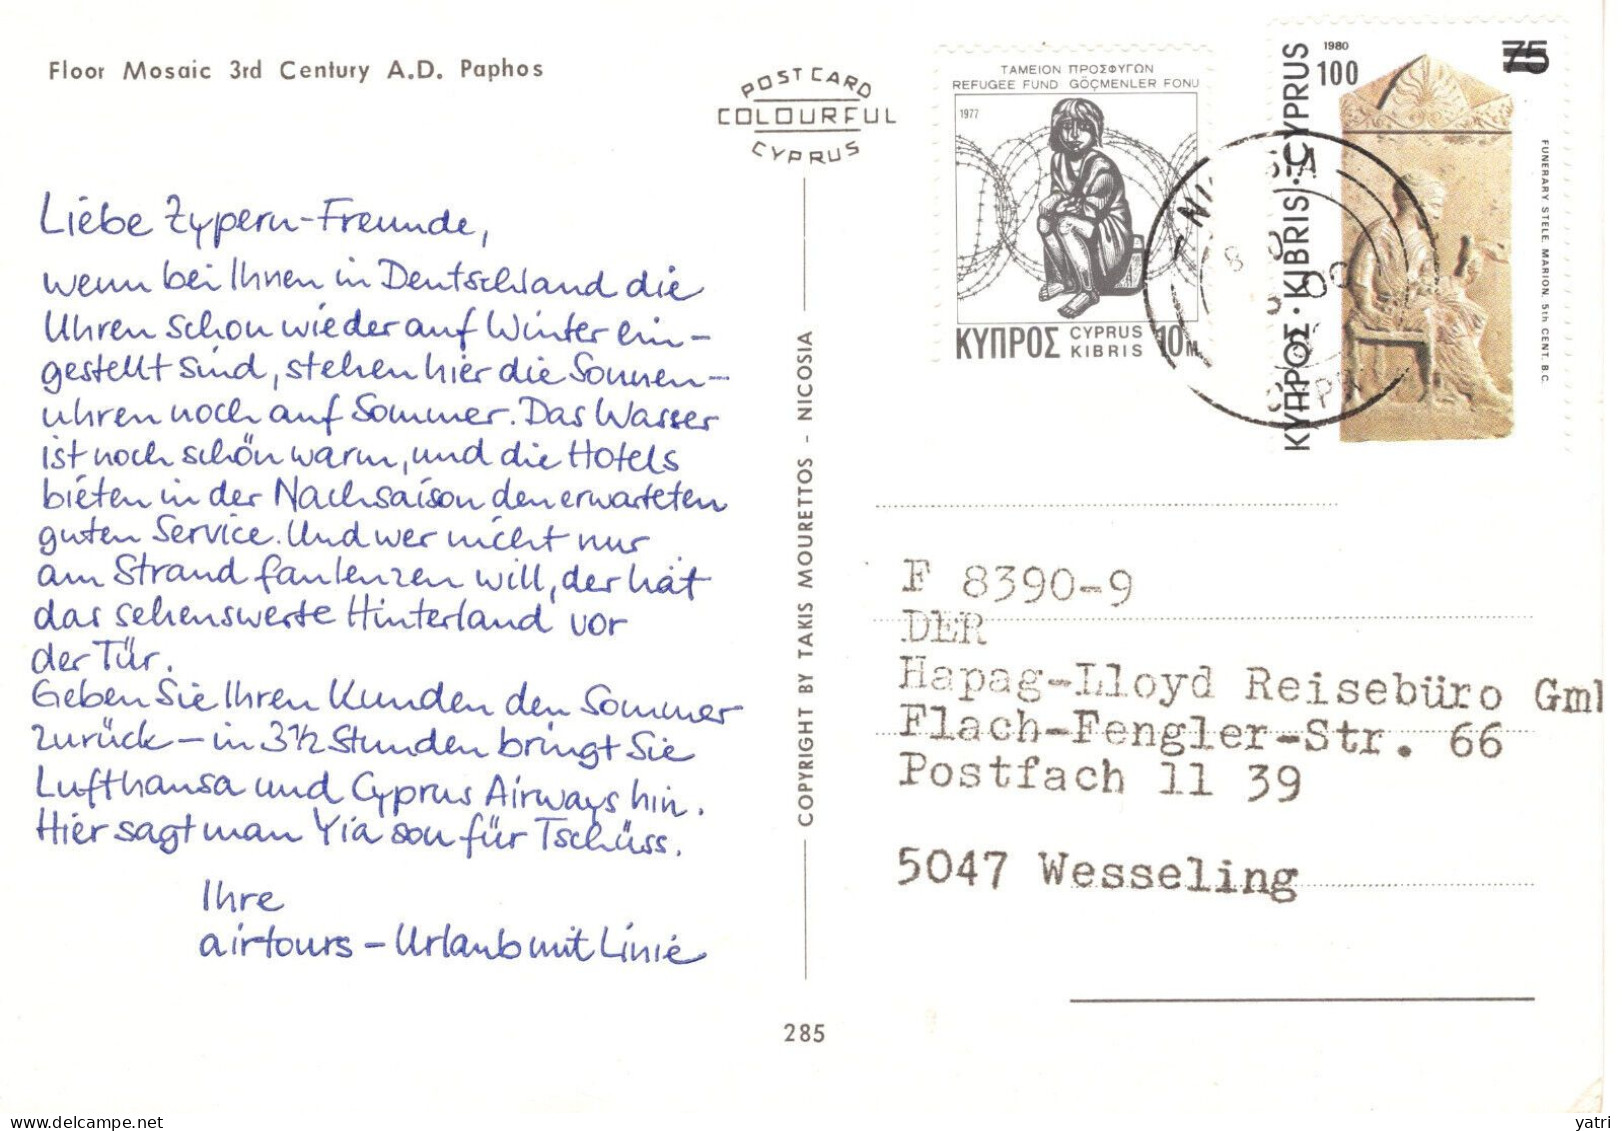 Floor Mosaic 3rd Century A.D. Paphos
POSTCARD
COLOURFUL
CYPRUS
Liebe Zypern-Freunde,
wenn bei Ihnen in Deutschland die
Uhren schon wieder auf Winter ein-
gestellt sind, stehen hier die Sonnen-
uhren noch auf Sommer. Das Wasser
ist noch schön warm, und die Hotels
bieten in der Nachsaison den erwarteten
guten Service. Und wer nicht nur
am Strand faulenzen will, der hat
das sehenswerte Hinterland vor
der Tür.
Geben Sie Ihren Kunden den Sommer
zurück – in 3 1/2 Stunden bringt Sie
Lufthansa und Cyprus Airways hin.
Hier sagt man Yia sou für Tschüss.
Ihre
airtours – Urlaub mit Linie
COPYRIGHT BY TAKIS MOURETTOS - NICOSIA
285
ΤΑΜΕΙΟΝ ΠΡΟΣΦΥΓΩΝ
REFUGEE FUND GÖÇMENLER FONU
1977
ΚΥΠΡΟΣ CYPRUS KIBRIS 10 M
ΚΥΠΡΟΣ · KIBRIS · CYPRUS
1980
100
75
FUNERARY STELE. MARION. 5th CENT. B.C.
F 8390-9
DER
Hapag-Lloyd Reisebüro Gmb
Flach-Fengler-Str. 66
Postfach 11 39
5047 Wesseling
yatri